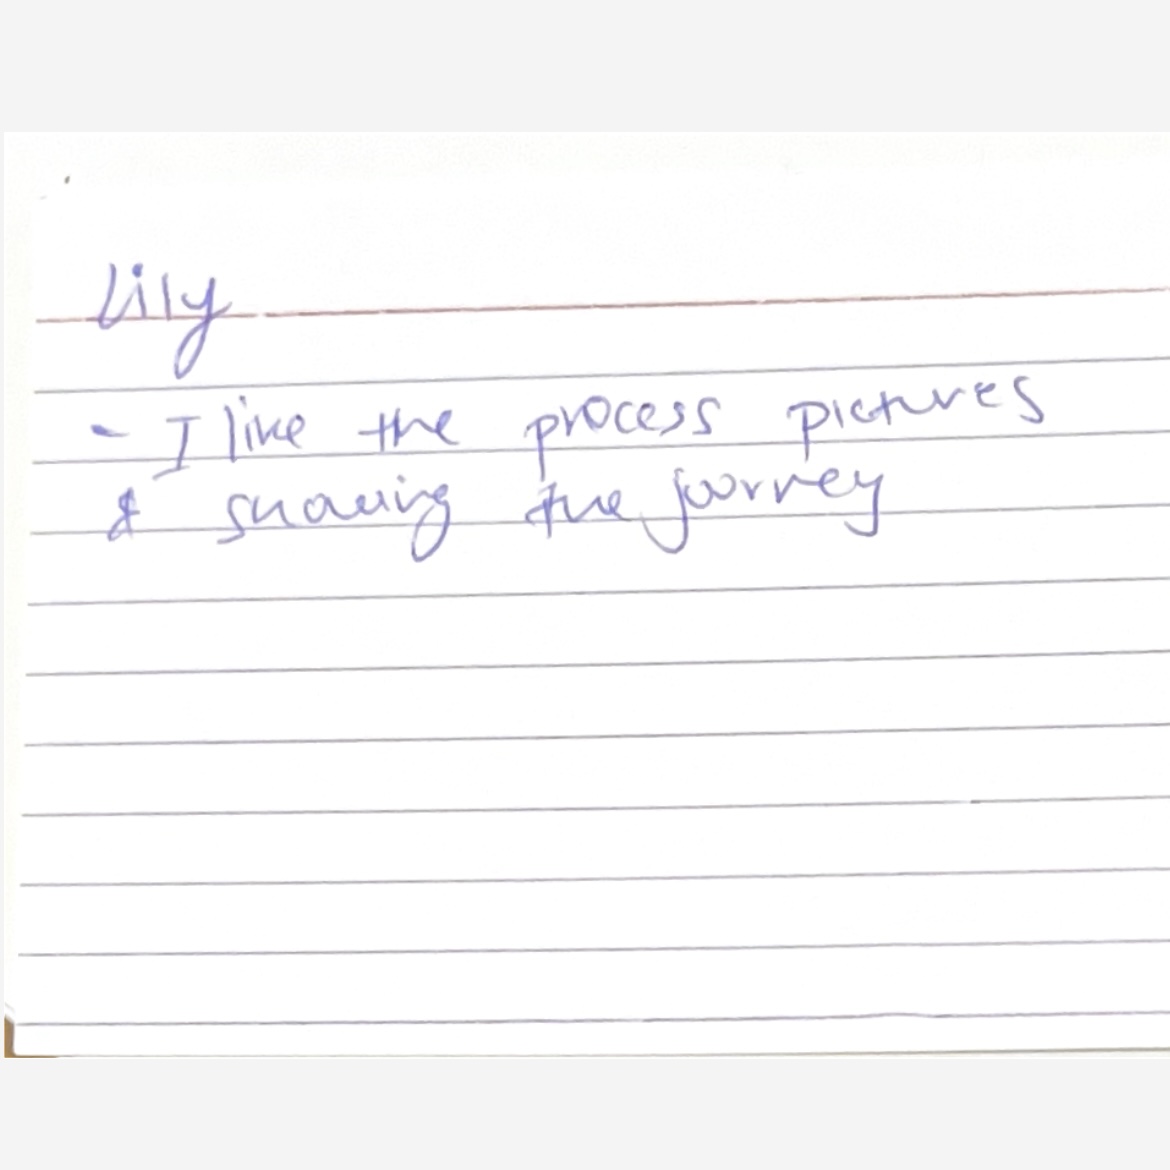 Lily
- I like the process pictures
& showing the journey